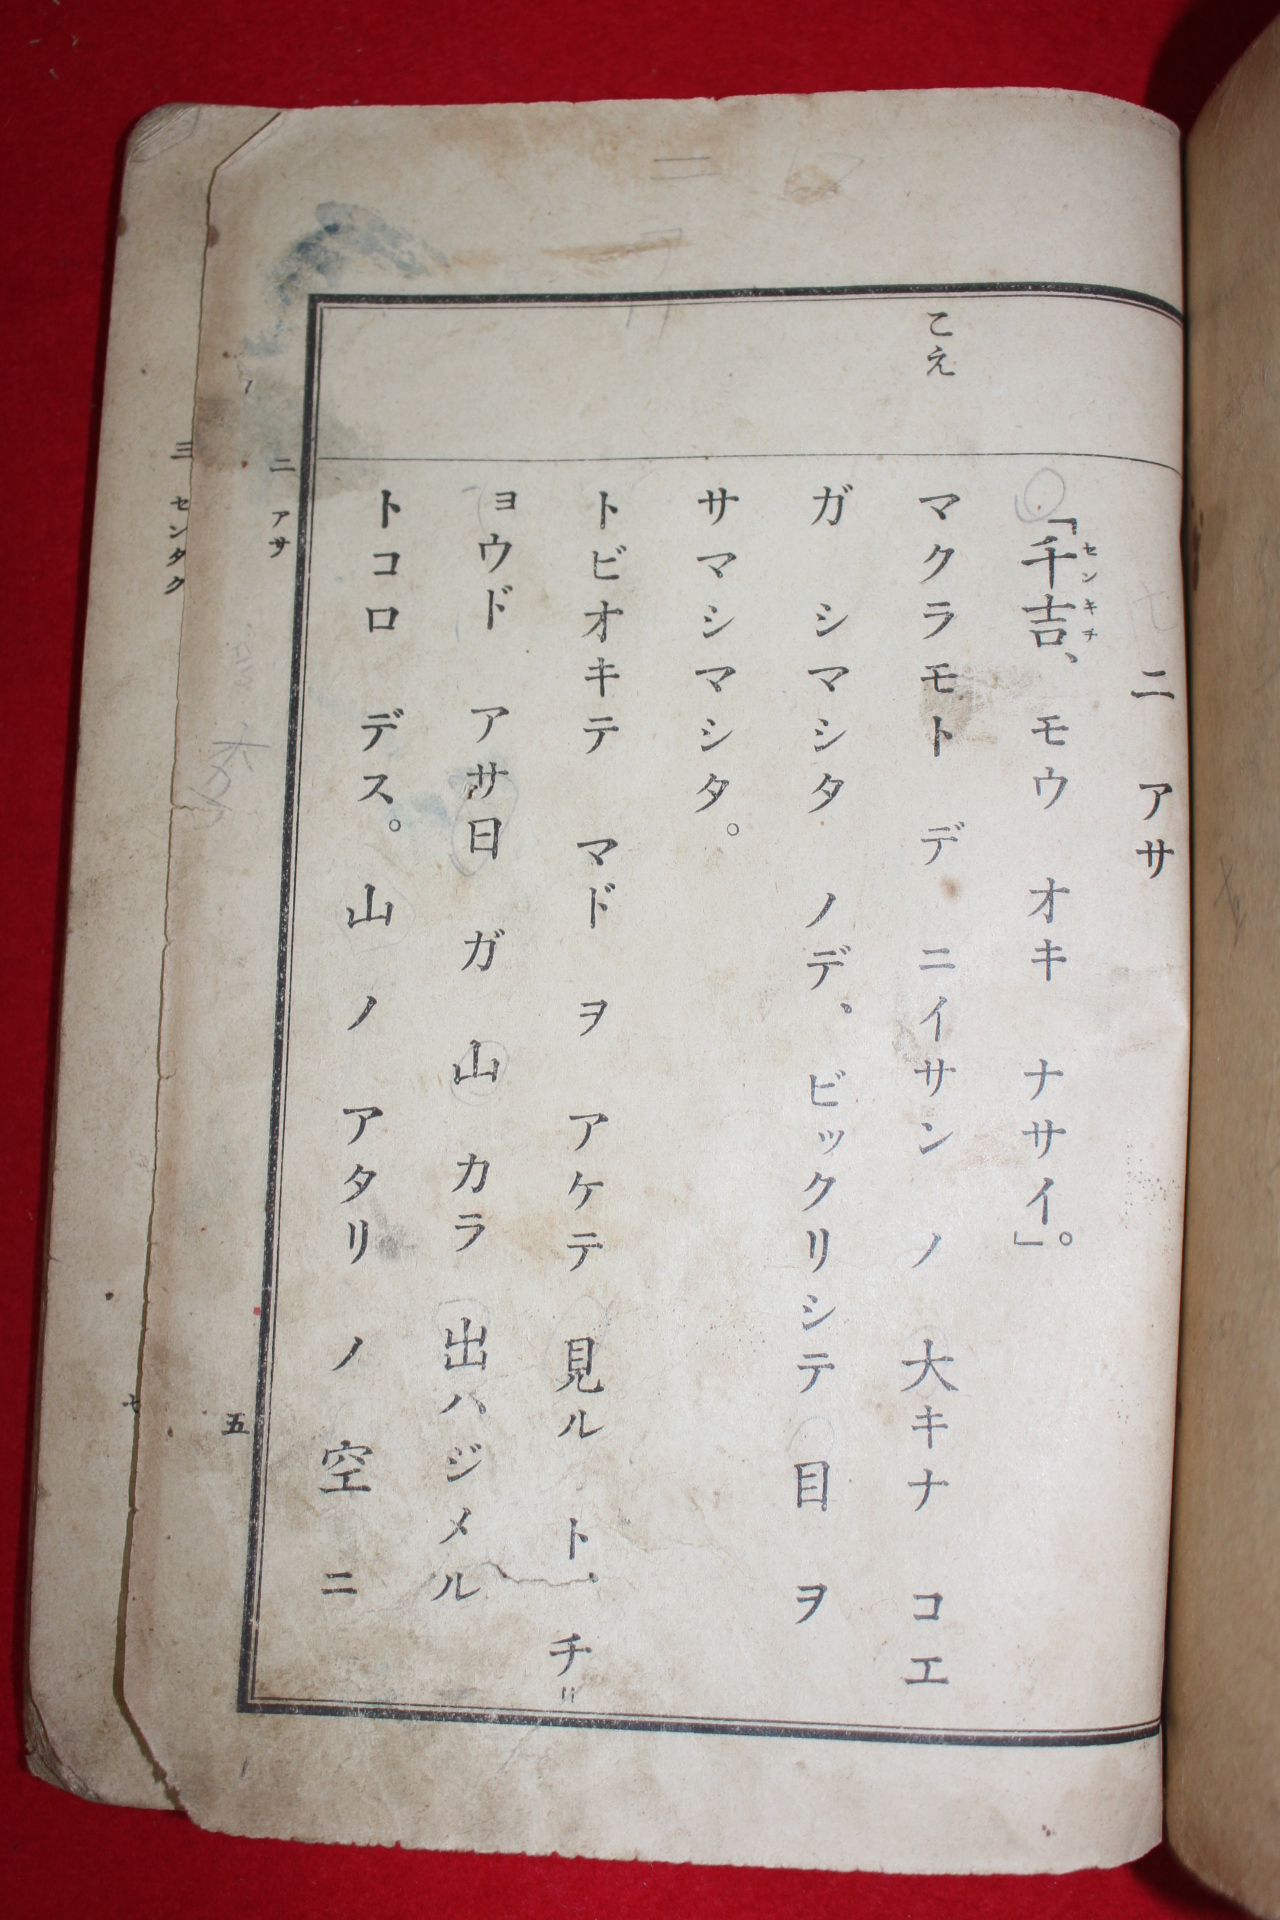 二 アサ
「千吉、モウ オキ ナサイ」。
センキチ
こえ
マクラモト デ ニイサン ノ 大キナ コエ
ガ シマシタ ノデ、ビックリシテ 目 ヲ
サマシマシタ。
トビオキテ マド ヲ アケテ 見ル ト、チ〓
ョウド アサ日 ガ 山 カラ 出ハジメル
トコロ デス。山 ノ アタリ ノ 空 ニ
二 アサ
五
三 センタク
七